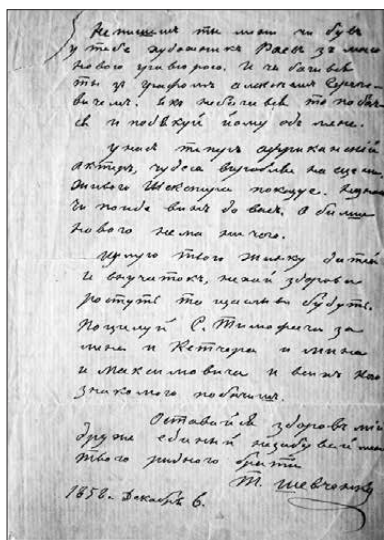 Не пишеш ты мени чи бувъ
у тебе художникъ Раевъ за мого
нового
ты з графомъ Алексіем
вичемъ. Як не бачився то побач
ся и подякуй йому одъ мене.
у насъ теперъ африканській
актеръ, чудеса вырабляе на сцени.
Живого Шекспира показуе. Не знаю
чи поиде винъ до васъ. А билш
нового нема ничого.
Цилую твого жинку диток
и внучатокъ, нехай здорови
ростуть та щасливи будуть.
Поцилуй С. Тимофича за
мене и Кетчера и Мина
и Максимовича и всихъ кого
знакомого побачишъ.
Оставайся здоровъ мій
друже единый не забувай
твого ридного брата
Т. Шевченка
1858. Декабрь 6.